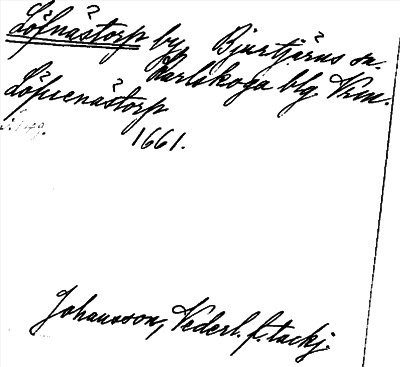 Löfnästorp by, Bjurtjärns sn.
Karlskoga blg Vrm.
Löpsenästorp
1661.
Johansson, Vederl. f. tackj.